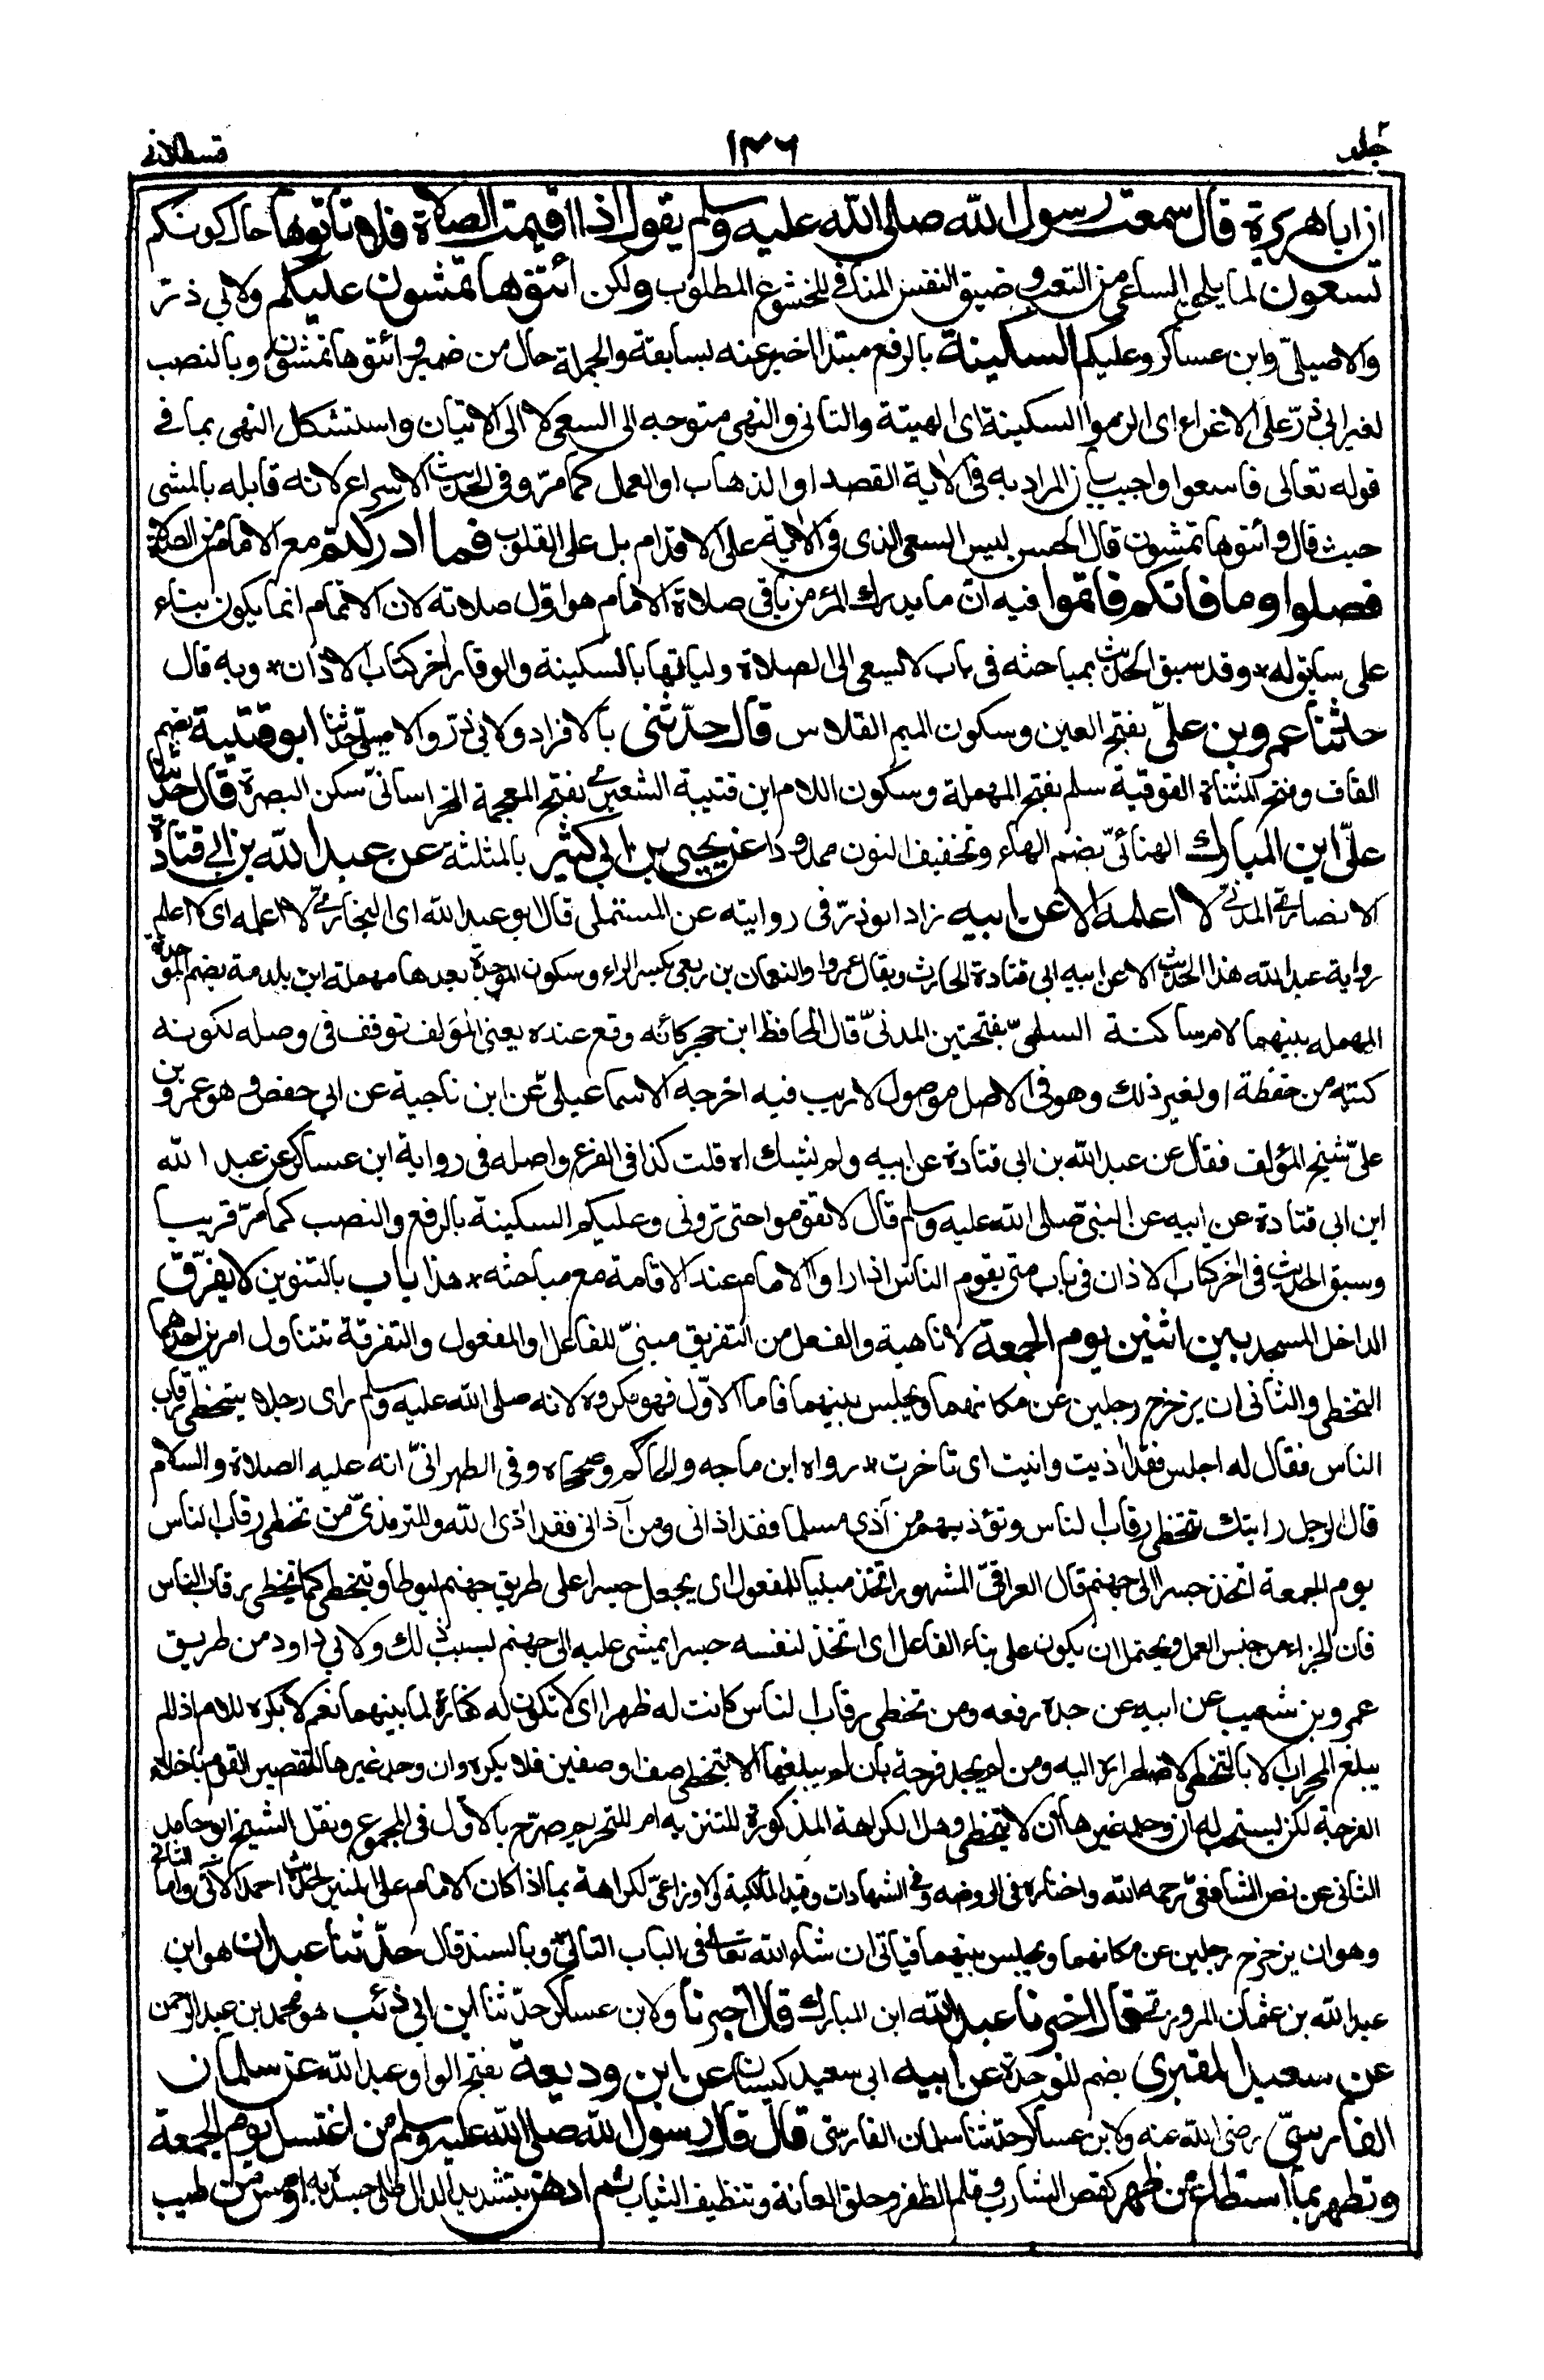 جلد ٢
١٣٦
قسطلانی
ان ابا هريرة قال سمعت رسول الله صلى الله عليه وسلم يقول اذا اقيمت الصلاة فلا تأتوها حال كونكم
تسعون لما يلحق الساعي من التعب وضيق النفس المنافي للخشوع المطلوب ولكن ائتوها تمشون عليكم ولابي ذر
والاصيلي وابن عساكر وعليكم السكينة بالرفع مبتدا اخبر عنه بسابقه والجملة حال من ضمير وائتوها تمشون وبالنصب
لغير ابي ذر على الاغراء اى الزموا السكينة اى الهينة والتانى والنهى متوجه الى السعى لا الى الاتيان واستشكل النهى بما فى
قوله تعالى فاسعوا واجيب بان المراد به فى الاية القصد او الذهاب او العمل كما مر وفى الحديث الاسراع لانه قابله بالمشى
حيث قال وائتوها تمشون قال الحسن ليس السعى الذى فى الاية على الاقدام بل على القلوب فما ادركتم مع الامام من الصلاة
فصلوا وما فاتكم فاتموا فيه ان ما يدرك المرء من باقى صلاة الامام هو اول صلاته لان الاتمام انما يكون بناء
على سابق له * وقد سبق الحديث بمباحثه فى باب لا يسعى الى الصلاة ولياتها بالسكينة والوقار اخر كتاب الاذان * وبه قال
حدثنا عمرو بن على بفتح العين وسكون الميم الفلاس قال حدثنى بالافراد ولابى ذر والاصيلى حدثنا ابو قتيبة بضم
القاف وفتح المثناة الفوقية سلم بفتح المهملة وسكون اللام ابن قتيبة الشعيرى بفتح المعجمة الخراسانى سكن البصرة قال حدثنا
على ابن المبارك الهنائى بضم الهاء وتخفيف النون ممدودا عن يحيى بن ابى كثير بالمثلثة عن عبد الله بن ابى قتادة
الانصارى المدنى لا اعلمه الا عن ابيه زاد ابو ذر فى روايته عن المستملى قال ابو عبد الله اى البخارى لا اعلمه اى لا اعلم
رواية عبد الله هذا الحديث الا عن ابيه ابى قتادة الحارث ويقال عمرو او النعمان بن ربعى بكسر الراء وسكون الموحدة بعدها مهملة ابن بلدمة بضم الموحدة
المهمله بينهما لام ساكنة السلمى بفتحتين المدنى قال الحافظ ابن حجر كانه وقع عنده يعنى المؤلف توقف فى وصله لكونه
كتبه من حفظه او لغير ذلك وهو فى الاصل موصول لا ريب فيه اخرجه الاسماعيلى عن ابن ناجية عن ابى حفص وهو عمرو بن
على شيخ المؤلف فقال عن عبد الله بن ابى قتادة عن ابيه ولم يشك اه قلت كذا فى الفرع واصله فى رواية ابن عساكر عن عبد الله
ابن ابى قتادة عن ابيه عن النبى صلى الله عليه وسلم قال لا تقوموا حتى ترونى وعليكم السكينة بالرفع والنصب كما مر قريبا
وسبق الحديث فى اخر كتاب الاذان فى باب متى يقوم الناس اذا راوا الامام عند الاقامة مع مباحثه * هذا باب بالتنوين لا يفرق
الداخل المسجد بين اثنين يوم الجمعة لا ناهية والفعل من التفريق مبنى للفاعل او المفعول والتفرقة تتناول امرين احدهما
التخطى والثانى ان يزحزح رجلين عن مكانهما ويجلس بينهما فاما الاول فهو مكروه لانه صلى الله عليه وسلم راى رجلا يتخطى رقاب
الناس فقال له اجلس فقد اذيت وانيت اى تاخرت * رواه ابن ماجه والحاكم وصححاه وفى الطبرانى انه عليه الصلاة والسلام
قال لرجل رايتك تتخطى رقاب الناس وتؤذيهم من آذى مسلما فقد اذانى ومن آذانى فقد اذى الله وللترمذى من تخطى رقاب الناس
يوم الجمعة اتخذ جسرا الى جهنم قال العراقى المشهور اتخذ مبنيا للمفعول اى يجعل جسرا على طريق جهنم ليوطا ويتخطى كما تخطى رقاب الناس
فان الجزاء من جنس العمل ويحتمل ان يكون على بناء الفاعل اى اتخذ لنفسه جسرا يمشى عليه الى جهنم بسبب ذلك ولابى داود من طريق
عمرو بن شعيب عن ابيه عن جده رفعه ومن تخطى رقاب الناس كانت له ظهرا اى لا تكون له كفارة لما بينهما نعم لا يكره للامام اذا لم
يبلغ المحراب الا بالتخطى لاضطراره اليه ومن لم يجد فرجة بان لم يبلغها الا بتخطى صف او صفين فلا يكره وان وجد غيرها لتقصير القوم باخلاء
الفرجة لكن يستحب له ان وجد غيرها ان لا يتخطى وهل الكراهة المذكورة للتنزيه ام للتحريم صرح بالاول فى المجموع ونقل الشيخ ابو حامد
الثانى عن نص الشافعى رحمه الله واختاره فى الروضه فى الشهادات وقيد المالكية والاوزاعى الكراهة بما اذا كان الامام على المنبر لحديث احمد الاتى واما الثانى
وهو ان يزحزح رجلين عن مكانهما ويجلس بينهما فياتى ان شاء الله تعالى فى الباب التالى وبالسند قال حدثنا عبدان هو ابن
عبد الله بن عثمان المروزى قال اخبرنا عبد الله ابن المبارك قال اخبرنا ولابن عساكر حدثنا ابن ابى ذئب هو محمد بن عبد الرحمن
عن سعيد المقبرى بضم الموحدة عن ابيه ابى سعيد كيسان عن ابن وديعة بفتح الواو عبد الله عن سلمان
الفارسى رضى الله عنه ولابن عساكر حدثنا سلمان الفارسى قال قال رسول الله صلى الله عليه وسلم من اغتسل يوم الجمعة
وتطهر بما استطاع من طهر كقص الشارب وقلم الظفر وحلق العانة وتنظيف الثياب ثم ادهن بتشديد الدال طلى جسده به او مس من طيب